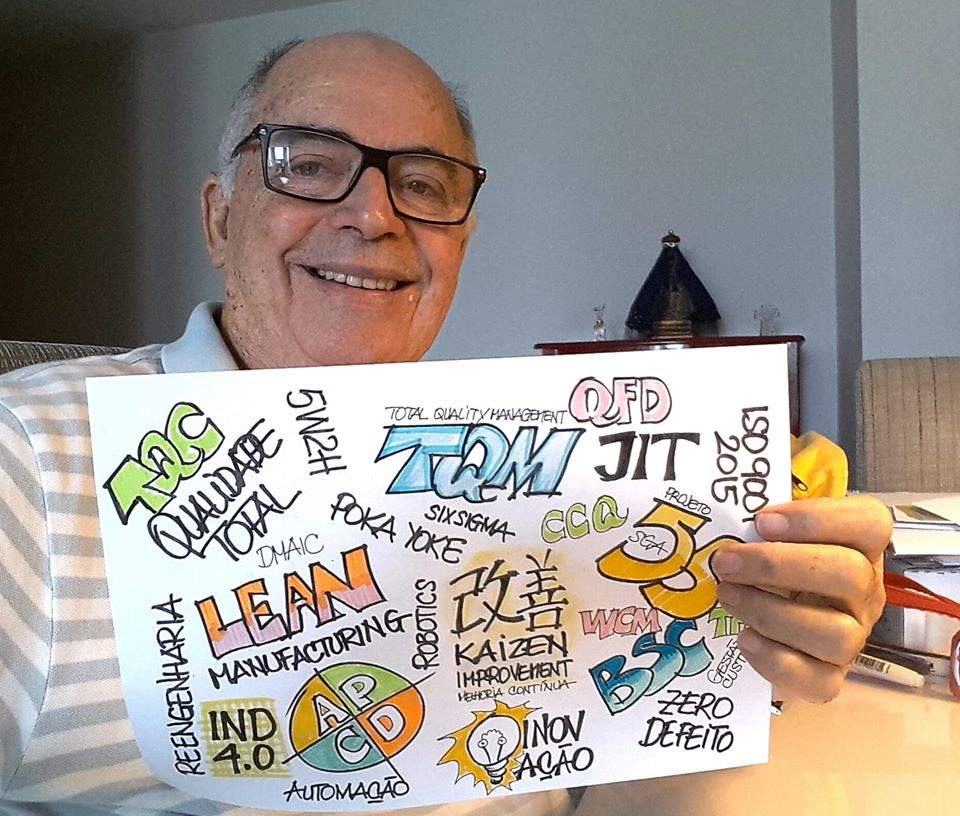 TQC
QUALIDADE
TOTAL
5W2H
TOTAL QUALITY MANAGEMENT
TQM
QFD
JIT
ISO 9001
2015
POKA YOKE
SIXSIGMA
CCQ
PROJETO
5S
SGA
DMAIC
LEAN
MANUFACTURING
ROBOTICS
改善
KAIZEN
IMPROVEMENT
MELHORIA CONTÍNUA
WCM
BSC
ZERO
DEFEITO
REENGENHARIA
IND
4.0
A P
C D
AUTOMAÇÃO
INOV
AÇÃO